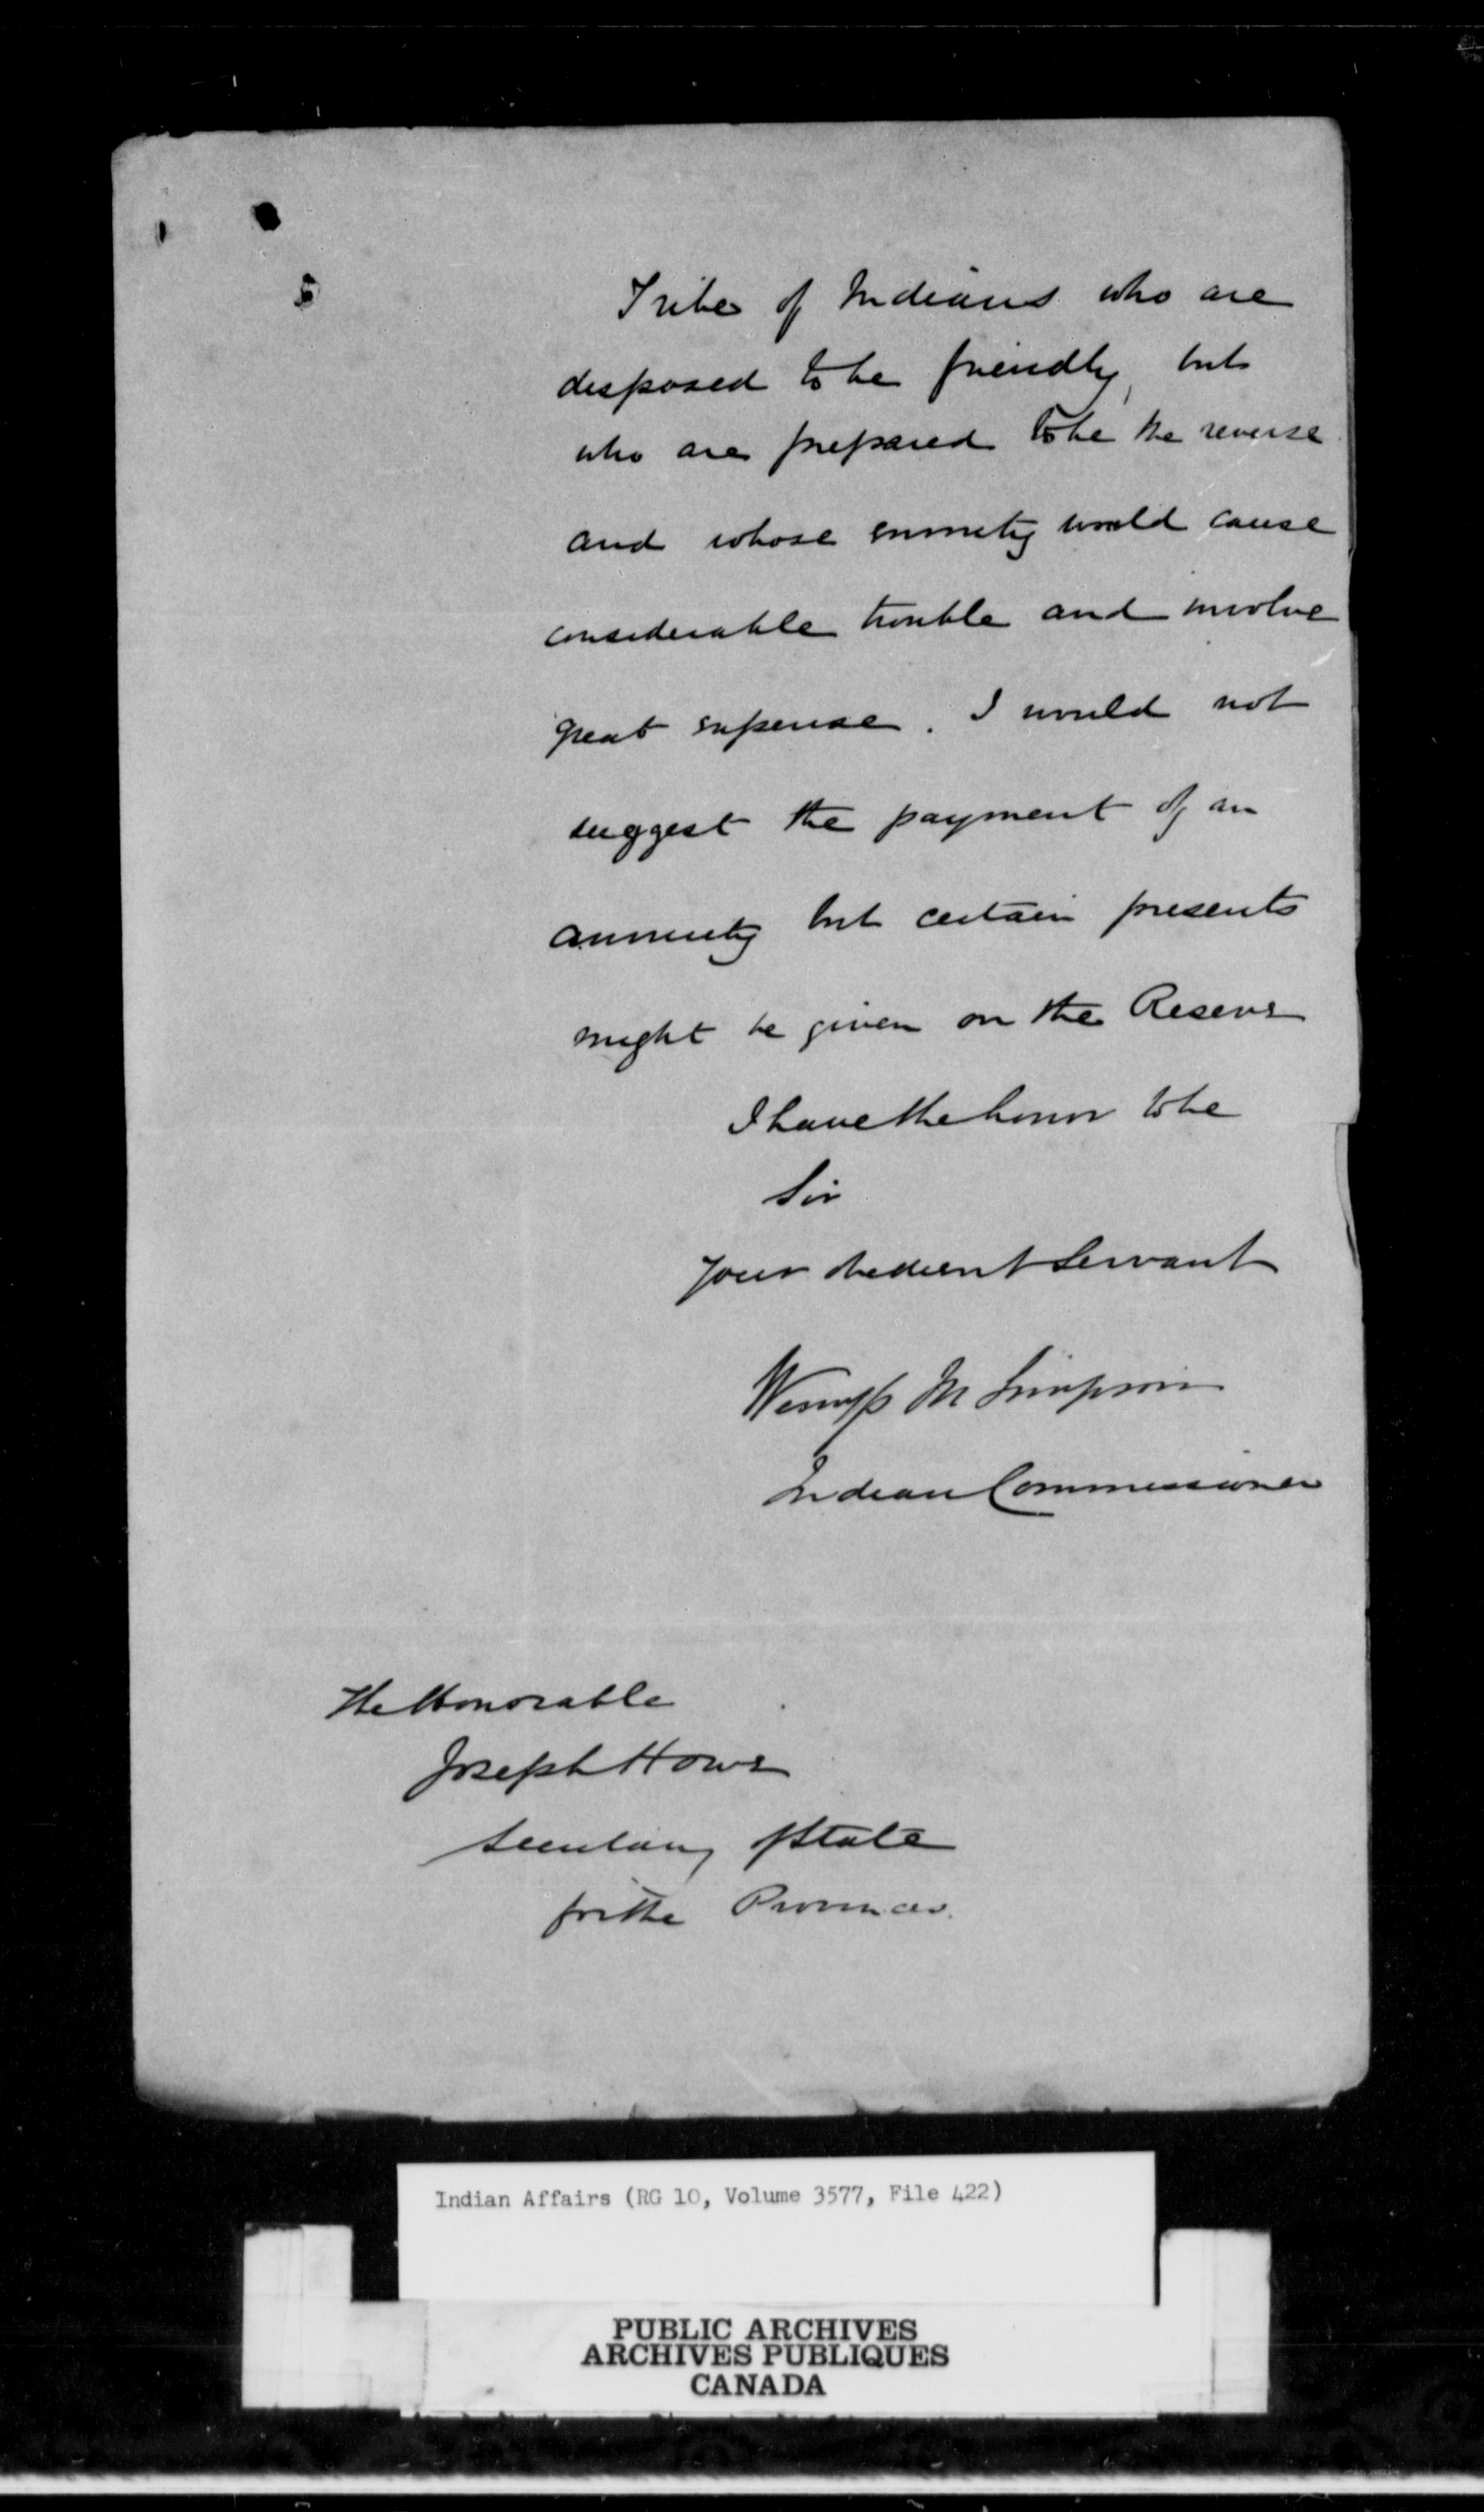 5
Tribe of Indians who are
disposed to be friendly, but
who are prepared to be the reverse
and whose enmity would cause
considerable trouble and involve
great expense. I would not
suggest the payment of an
annuity but certain presents
might be given on the Reserve
I have the honor to be
Sir
Your obedient Servant
Wemyss M Simpson
Indian Commissioner
The Honorable
Joseph Howe
Secretary of State
for the Provinces.
Indian Affairs (RG 10, Volume 3577, File 422)
PUBLIC ARCHIVES
ARCHIVES PUBLIQUES
CANADA